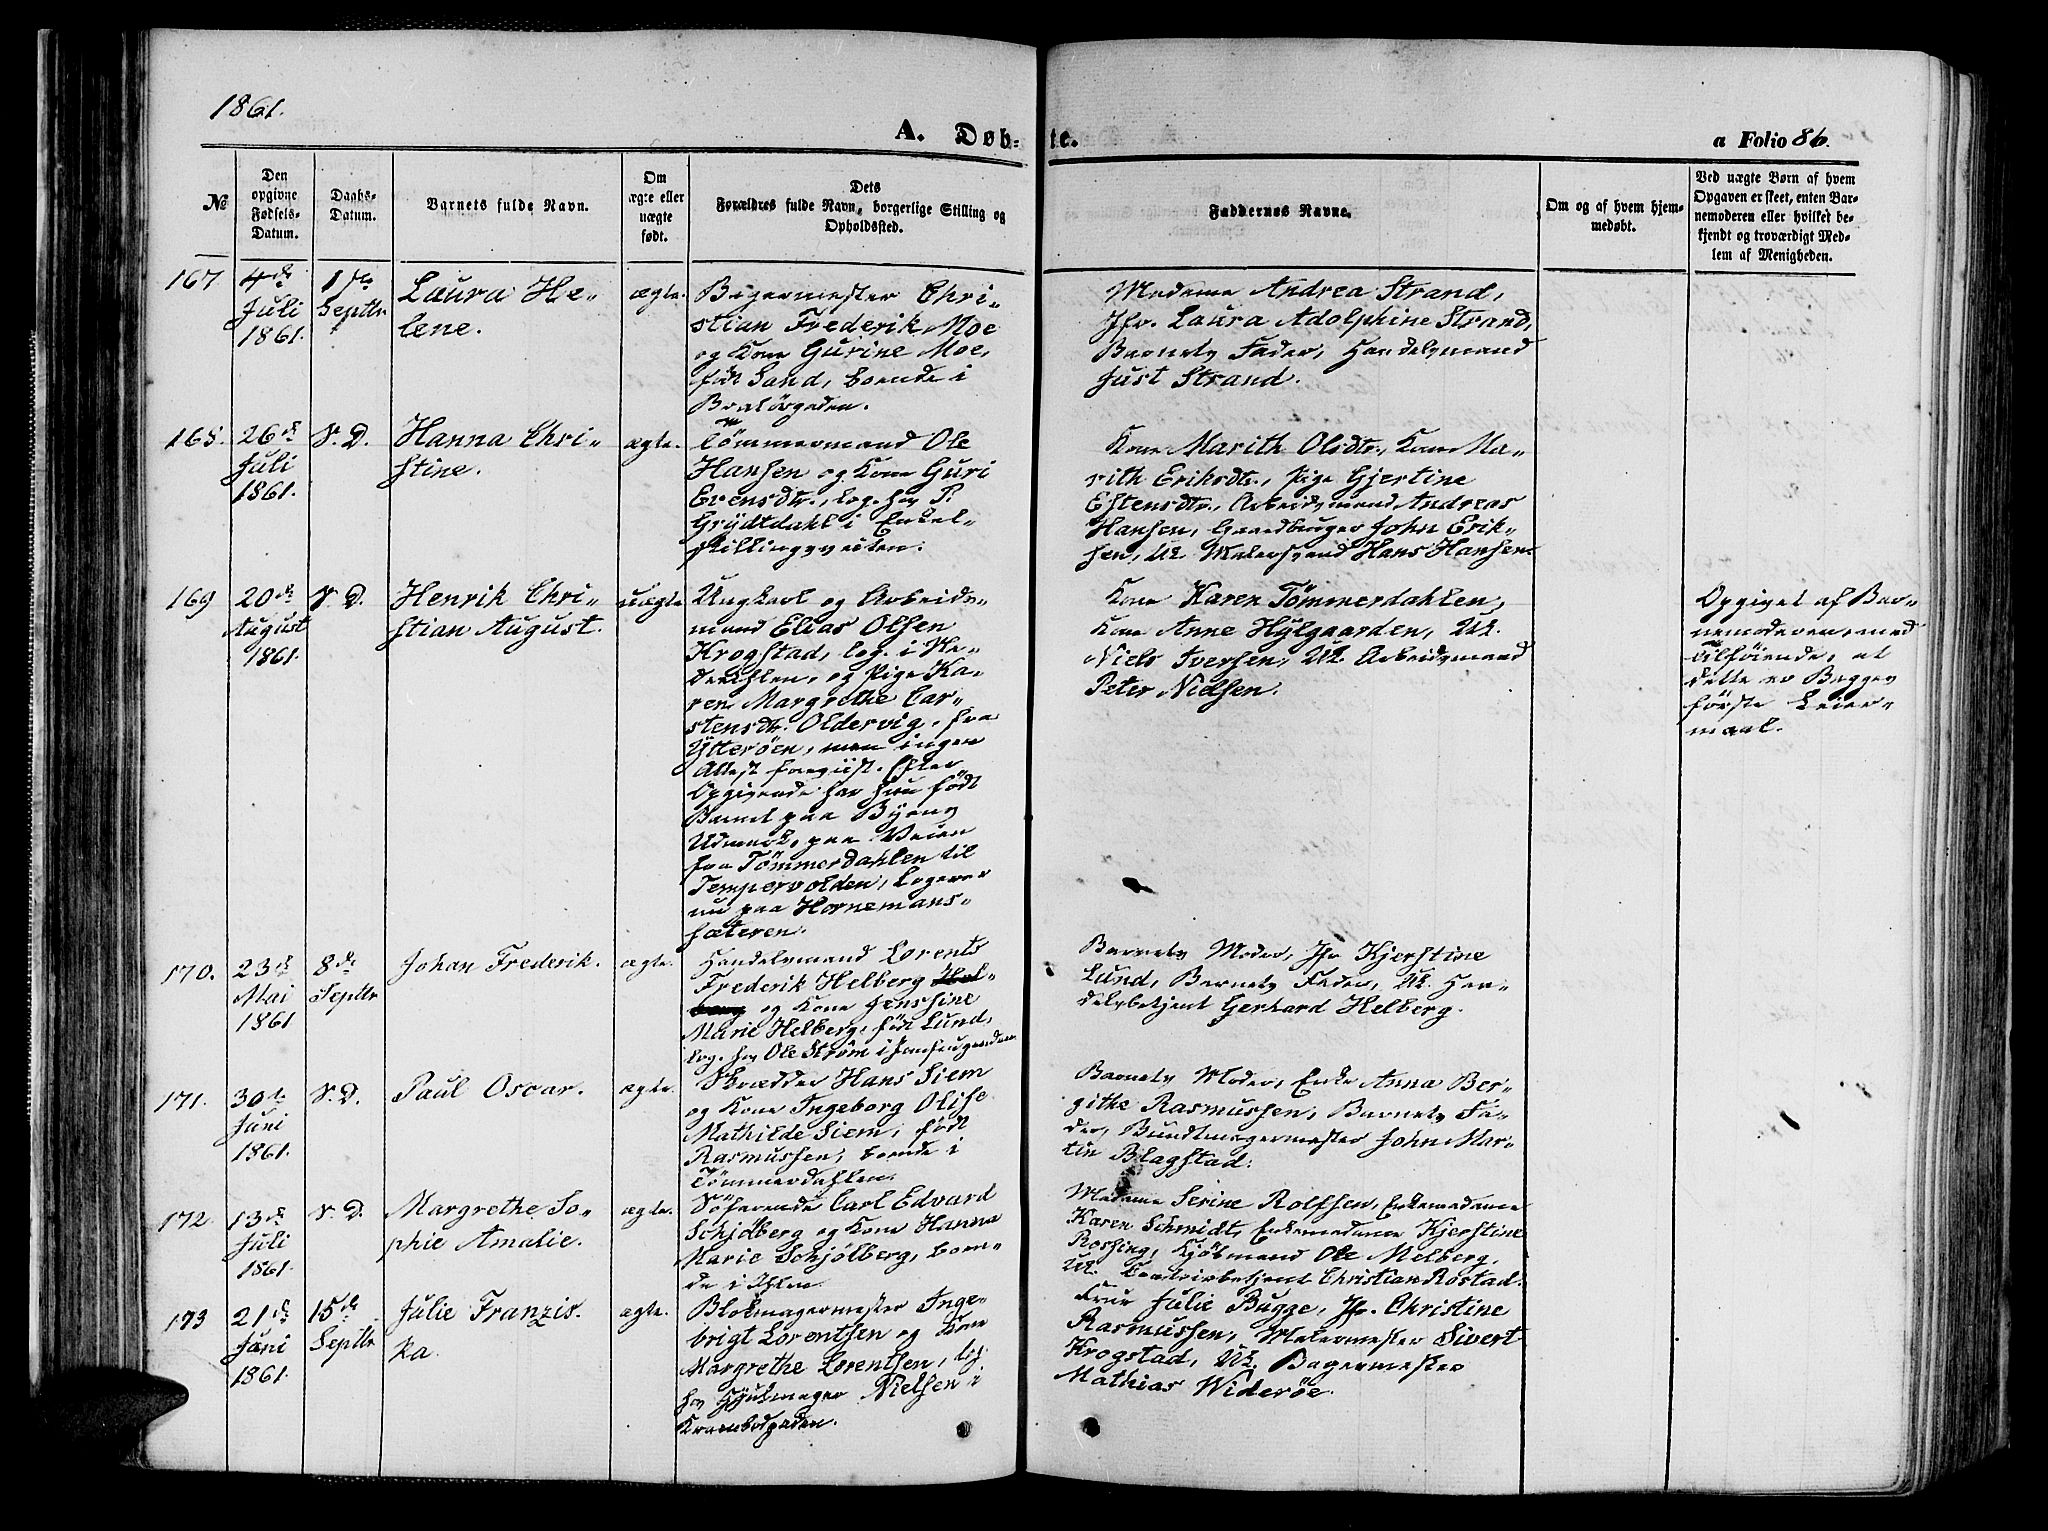 1861.
A. Døb-
te.
a Folio 86.
№
Den
opgivne
Fødsels-
Datum.
Daabs-
Datum.
Barnets fulde Navn.
Om
ægte eller
uægte
født.
Dets
Forældres fulde Navn, borgerlige Stilling og
Opholdssted.
Faddernes Navne.
Om og af hvem hjem-
medøbt.
Ved uægte Børn af hvem
Opgaven er skeet, enten Bar-
nemoderen eller hvilket be-
kjendt og troværdigt Med-
lem af Menigheden.
167
4de
Juli
1861.
1ste
Septbr
Laura He-
lene.
ægte.
Bagermester Chri-
stian Frederik Moe
og Kone Gurine Moe,
født Sand, boende i
Bratørgaden.
Madame Andrea Strand,
Jfr. Laura Adolphine Strand,
Barnets Fader, Handelsmand
Just Strand.
168.
26de
Juli
1861.
S. D.
Hanna Chri-
stine.
ægte.
Tømmermand Ole
Hansen og Kone Guri
Evensdtr., log. hos P.
Grydtdahl i Enkel-
skillingsveiten.
Kone Marith Olsdtr., Kone Ma-
rith Eriksdtr., Pige Gjertine
Estensdtr., Arbeidsmand Andreas
Hansen, Gaardbruger John Erik-
sen, Uk. Malersvend Hans Hansen.
169
20de
August
1861.
S. D.
Henrik Chri-
stian August.
uægte
Ungkarl og Arbeids-
mand Elias Olsen
Krogstad, log. i Ve-
dre Ihlen, og Pige Ka-
ren Margrethe Car-
stensdtr. Oldervig, fra
Ytterøen, men ingen
Attest foreviist. Efter
Opgivende har hun født
Barnet paa Byens
Udmark, paa Veien
fra Tømmerdahlen til
Tempervolden, logerer
nu paa Hornemans-
sæteren.
Kone Karen Tømmerdahlen,
Kone Anne Hylgaarden, Uk.
Niels Iversen, Uk. Arbeidsmand
Peter Nielsen.
Opgivet af Bar-
nemoderen, med
Tilføiende, at
dette er Begges
første Leier-
maal.
170.
23de
Mai
1861
8de
Septbr
Johan Frederik.
ægte.
Handelsmand Lorents
Frederik Helberg Hel-
berg og Kone Jenssine
Marie Helberg, født Lund,
log. hos Ole Strøm i
Barnets Moder, Jfr Kjerstine
Lund, Barnets Fader, Uk. Han-
delsbetjent Gerhard Helberg.
171.
30te
Juni
1861.
S. D.
Paul Oscar.
ægte.
Skrædder Hans Siem
og Kone Ingeborg Olise
Mathilde Siem, født
Rasmussen, boende i
Tømmerdahlen.
Barnets Moder, Enke Anna Ber-
githe Rasmussen, Barnets Fa-
der, Bundtmagermester John Mar-
tin Blagstad.
172
13de
Juli
1861.
S. D.
Margrethe So-
phie Amalie.
ægte.
Søfarende Carl Edvard
Schjølberg og Kone Hanna
Marie Schjølberg, boen-
de i Ihlen.
Madame Serine Rolfsen, Enkemadame
Karen Schmidt, Enkemadame Kjerstine
Rossing, Kjøbmand Ole Melberg.
Uk. Christian Rostad.
173
21de
Juni
1861.
15de
Septbr
Julie Franzis-
ka.
ægte.
Blokmagermester Inge-
brigt Lorentsen og Kone
Margrethe Lorentsen, log.
hos Hjulmager Nielsen i
Krambodgaden.
Frue Julie Bugge, Jfr. Christine
Rasmussen, Malermester Sivert
Krogstad, Uk. Bagermester
Mathias Widerøe.